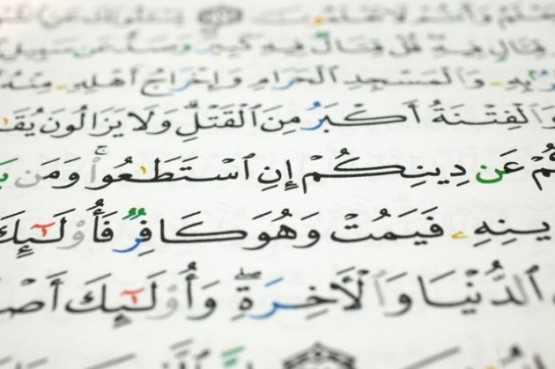 وَأَنتُمْ لَا تَعْلَمُونَ
قِتَالٍ فِيهِ قُلْ قِتَالٌ فِيهِ كَبِيرٌ وَصَدٌّ عَن سَبِيلِ
بِهِۦ وَٱلْمَسْجِدِ ٱلْحَرَامِ وَإِخْرَاجُ أَهْلِهِۦ مِنْهُ
وَٱلْفِتْنَةُ أَكْبَرُ مِنَ ٱلْقَتْلِ وَلَا يَزَالُونَ يُقَـ
ـُمْ عَن دِينِكُمْ إِنِ ٱسْتَطَـٰعُوا۟ وَمَن يَـ
ـينِهِۦ فَيَمُتْ وَهُوَ كَافِرٌ فَأُو۟لَـٰٓئِكَ
ٱلدُّنْيَا وَٱلْـَٔاخِرَةِ ۖ وَأُو۟لَـٰٓئِكَ أَصْـ